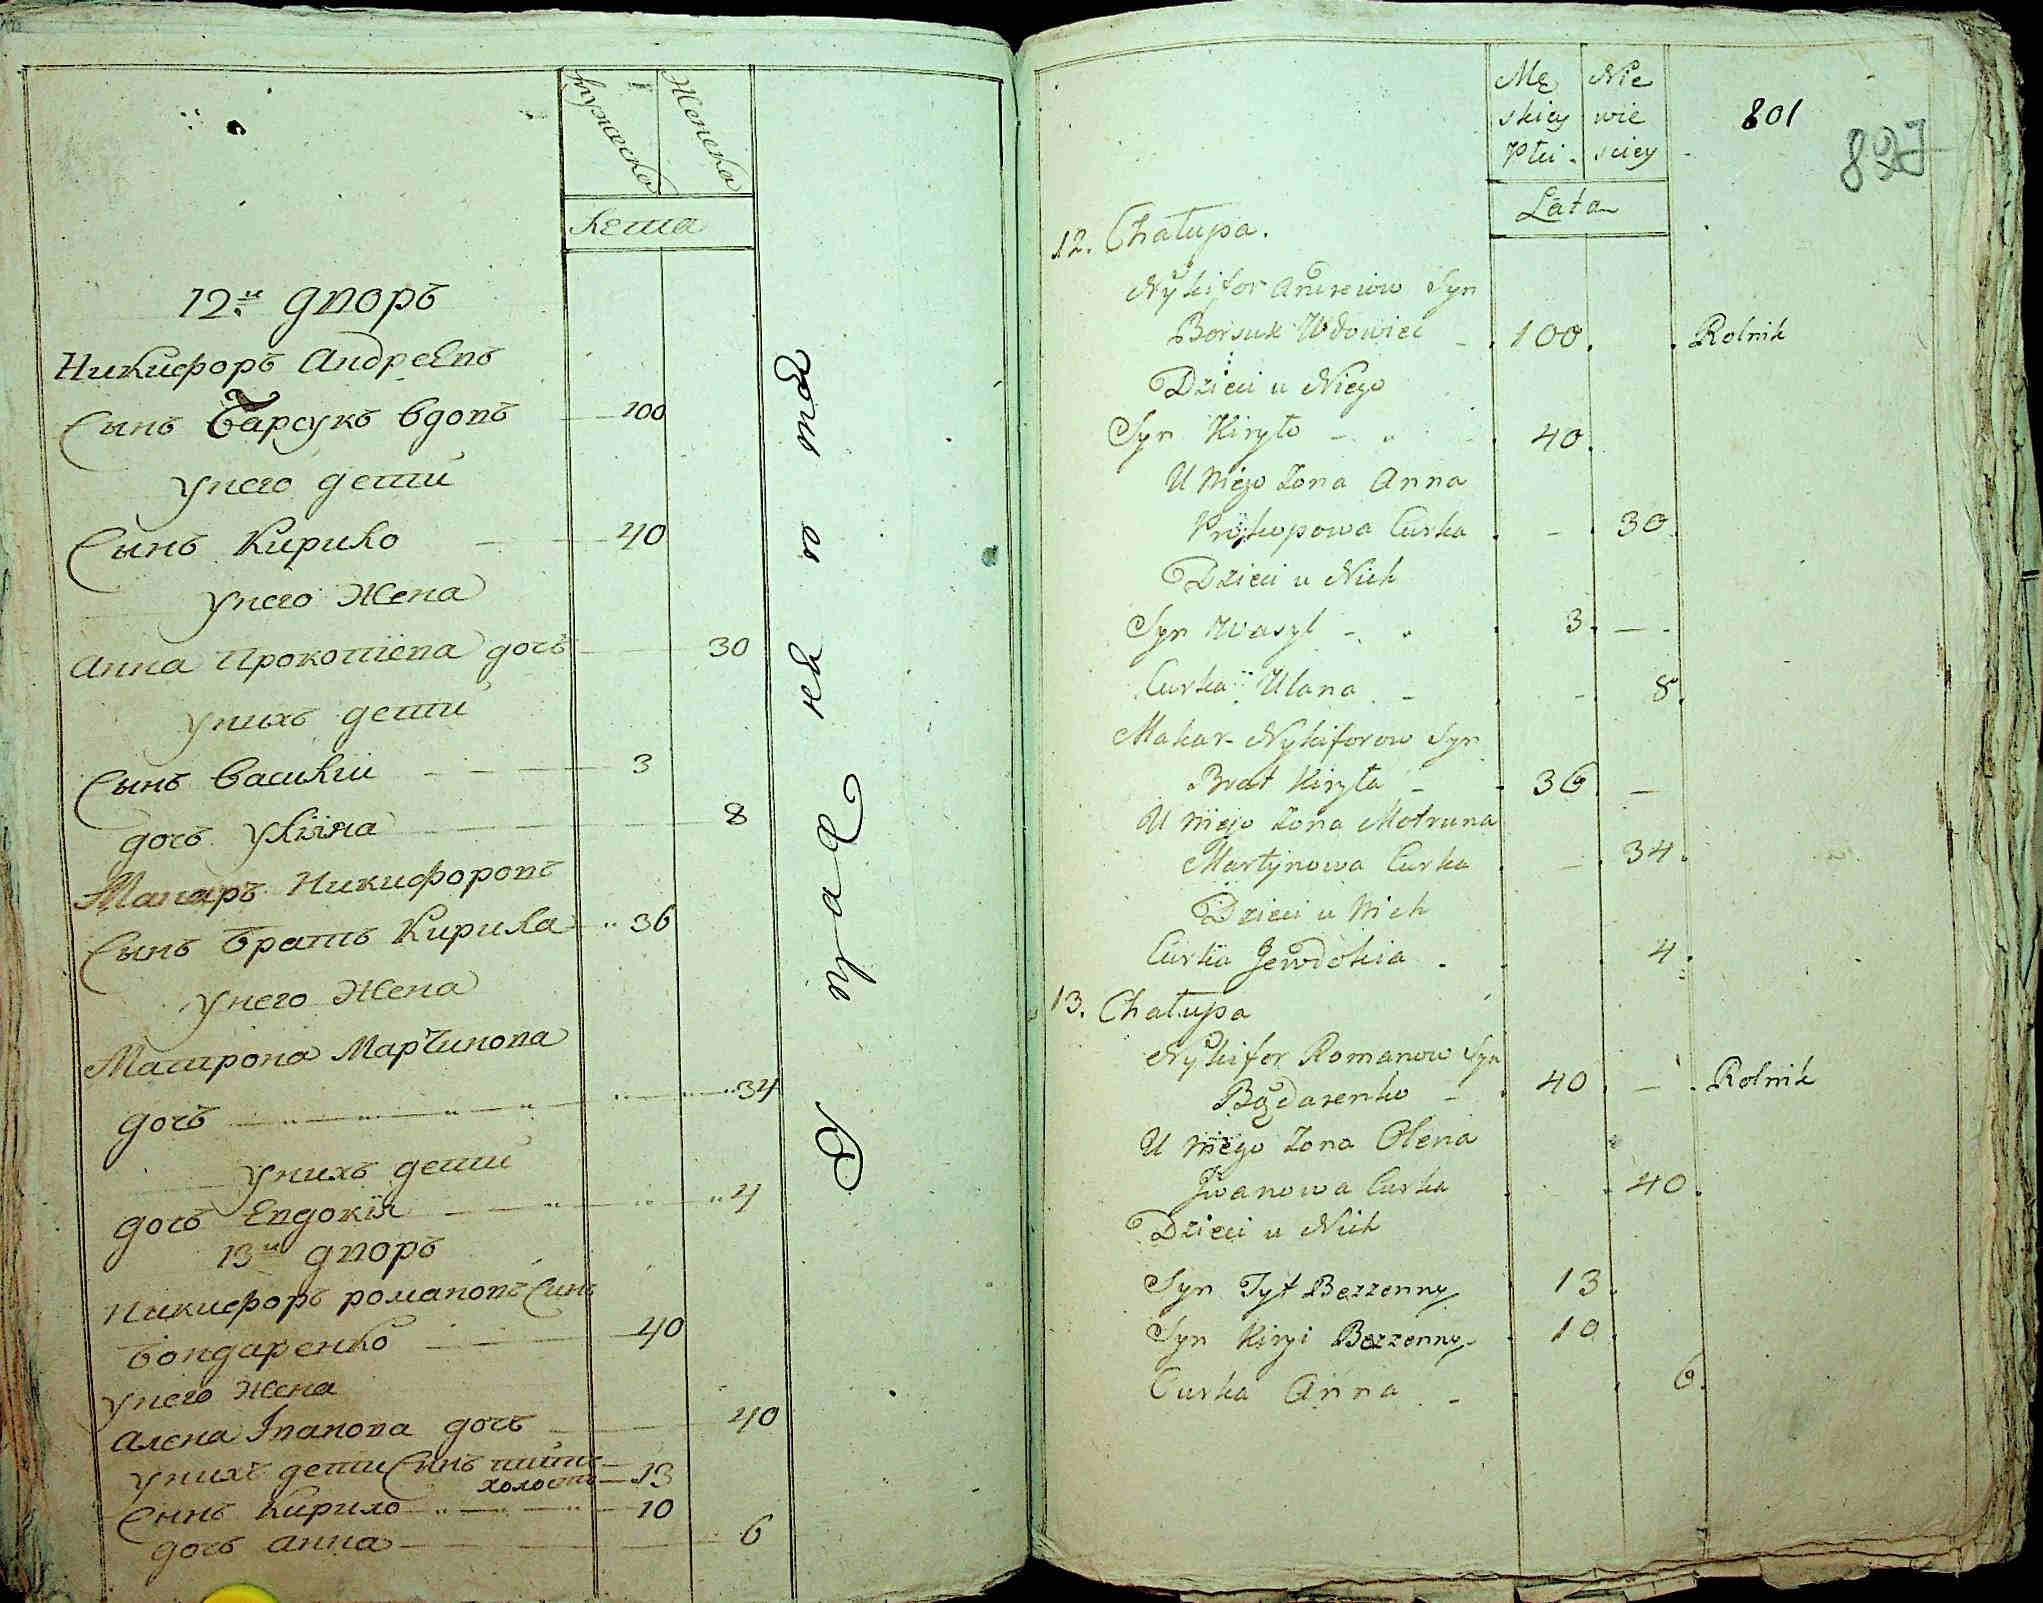 мужеска
Женска
Лета
12й дворъ
Никифоръ Андреевъ
Сынъ Барсукъ вдовъ 100
Унего дети
Сынъ Кирило 40
Унего Жена
Анна Прокопiева дочь 30
Унихъ дети
Сынъ Василiй 3
дочь Улiяна 8
Макаръ Никифоровъ
Сынъ братъ Кирила 36
Унего Жена
Матрона Мартинова
дочь 34
Унихъ дети
дочь Евдокiя 4
13й дворъ
Никифоръ романовъ Синъ
бондаренко 40
Унего Жена
Алена Iванова дочь 40
Унихъ дети Синъ титъ
холостъ 13
Синъ Кирило 10
дочь анна 6
Męskiey Płci
Niewiesciey
801
827
Lata
12. Chałupa.
Nykifor Andreiow Syn
Borsuk Wdowiec 100. Rolnik
Dzieci u Niego
Syn Kiryło 40.
U Niego Zona Anna
Prykopowa Curka 30.
Dzieci u Nich
Syn Wasyl 3.
Curka Ulana 8.
Makar Nykiforow Syn
Brat Kiryła 36.
U Niego Zona Motruna
Martynowa Curka 34.
Dzieci u Nich
Curka Jewdokia 4.
13. Chałupa
Nykifor Romanow Syn
Bądarenko 40. Rolnik
U Niego Zona Olena
Jwanowa Curka 40.
Dzieci u Nich
Syn Tyt Bezzenny 13.
Syn Kiryi Bezzenny 10.
Curka Anna 6.